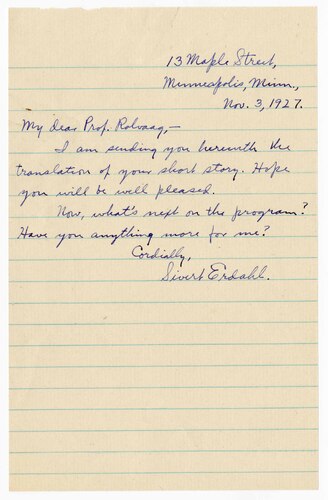 13 Maple Street,
Minneapolis, Minn.,
Nov. 3, 1927.
My dear Prof. Rolvaag,—
I am sending you herewith the
translation of your short story. Hope
you will be well pleased.
Now, what's next on the program?
Have you anything more for me?
Cordially,
Sivert Erdahl.